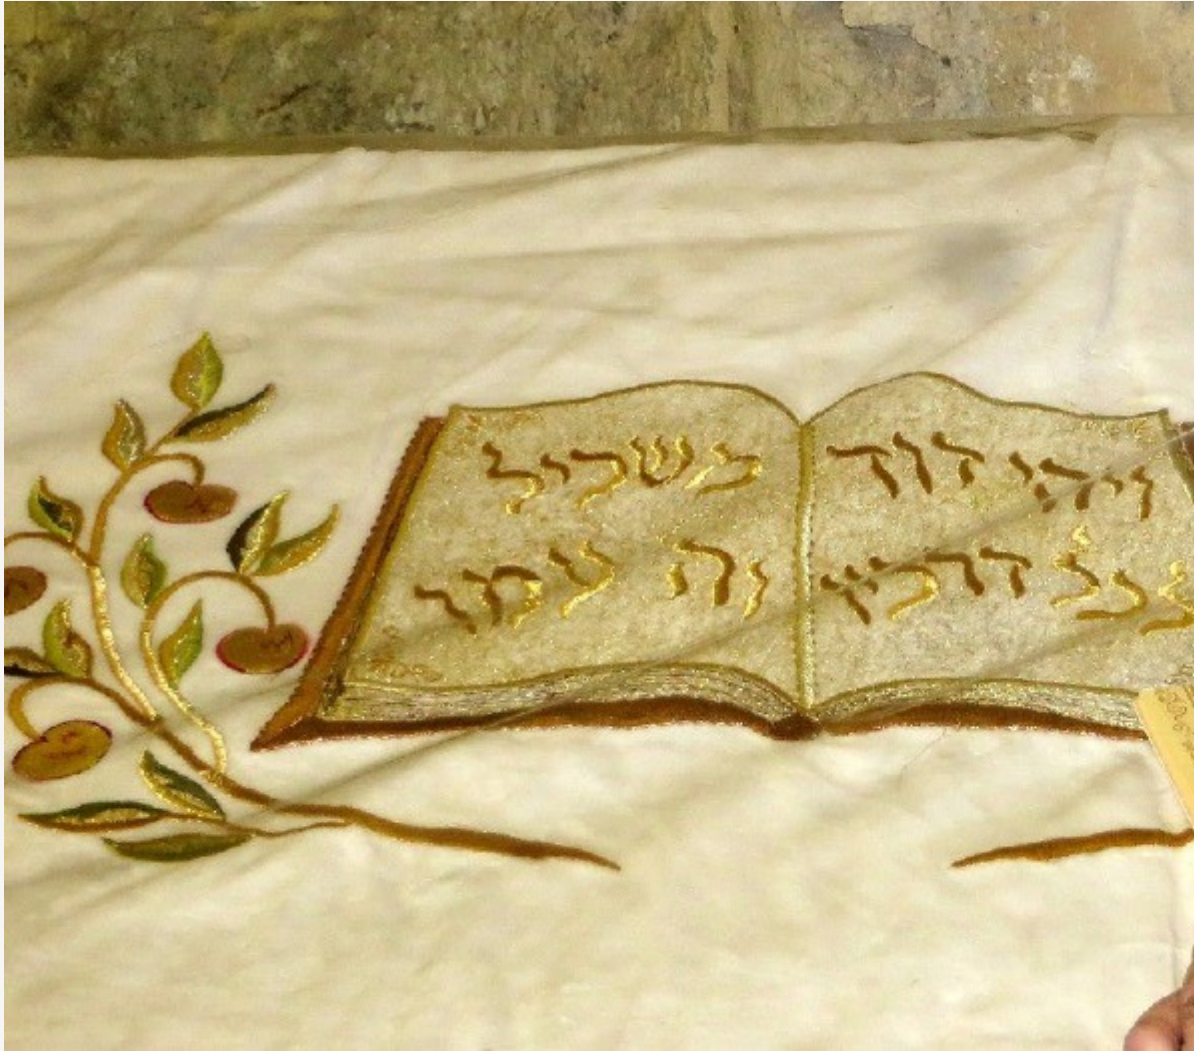 ויהי דוד
בכל דרכיו
משכיל
וה עמו